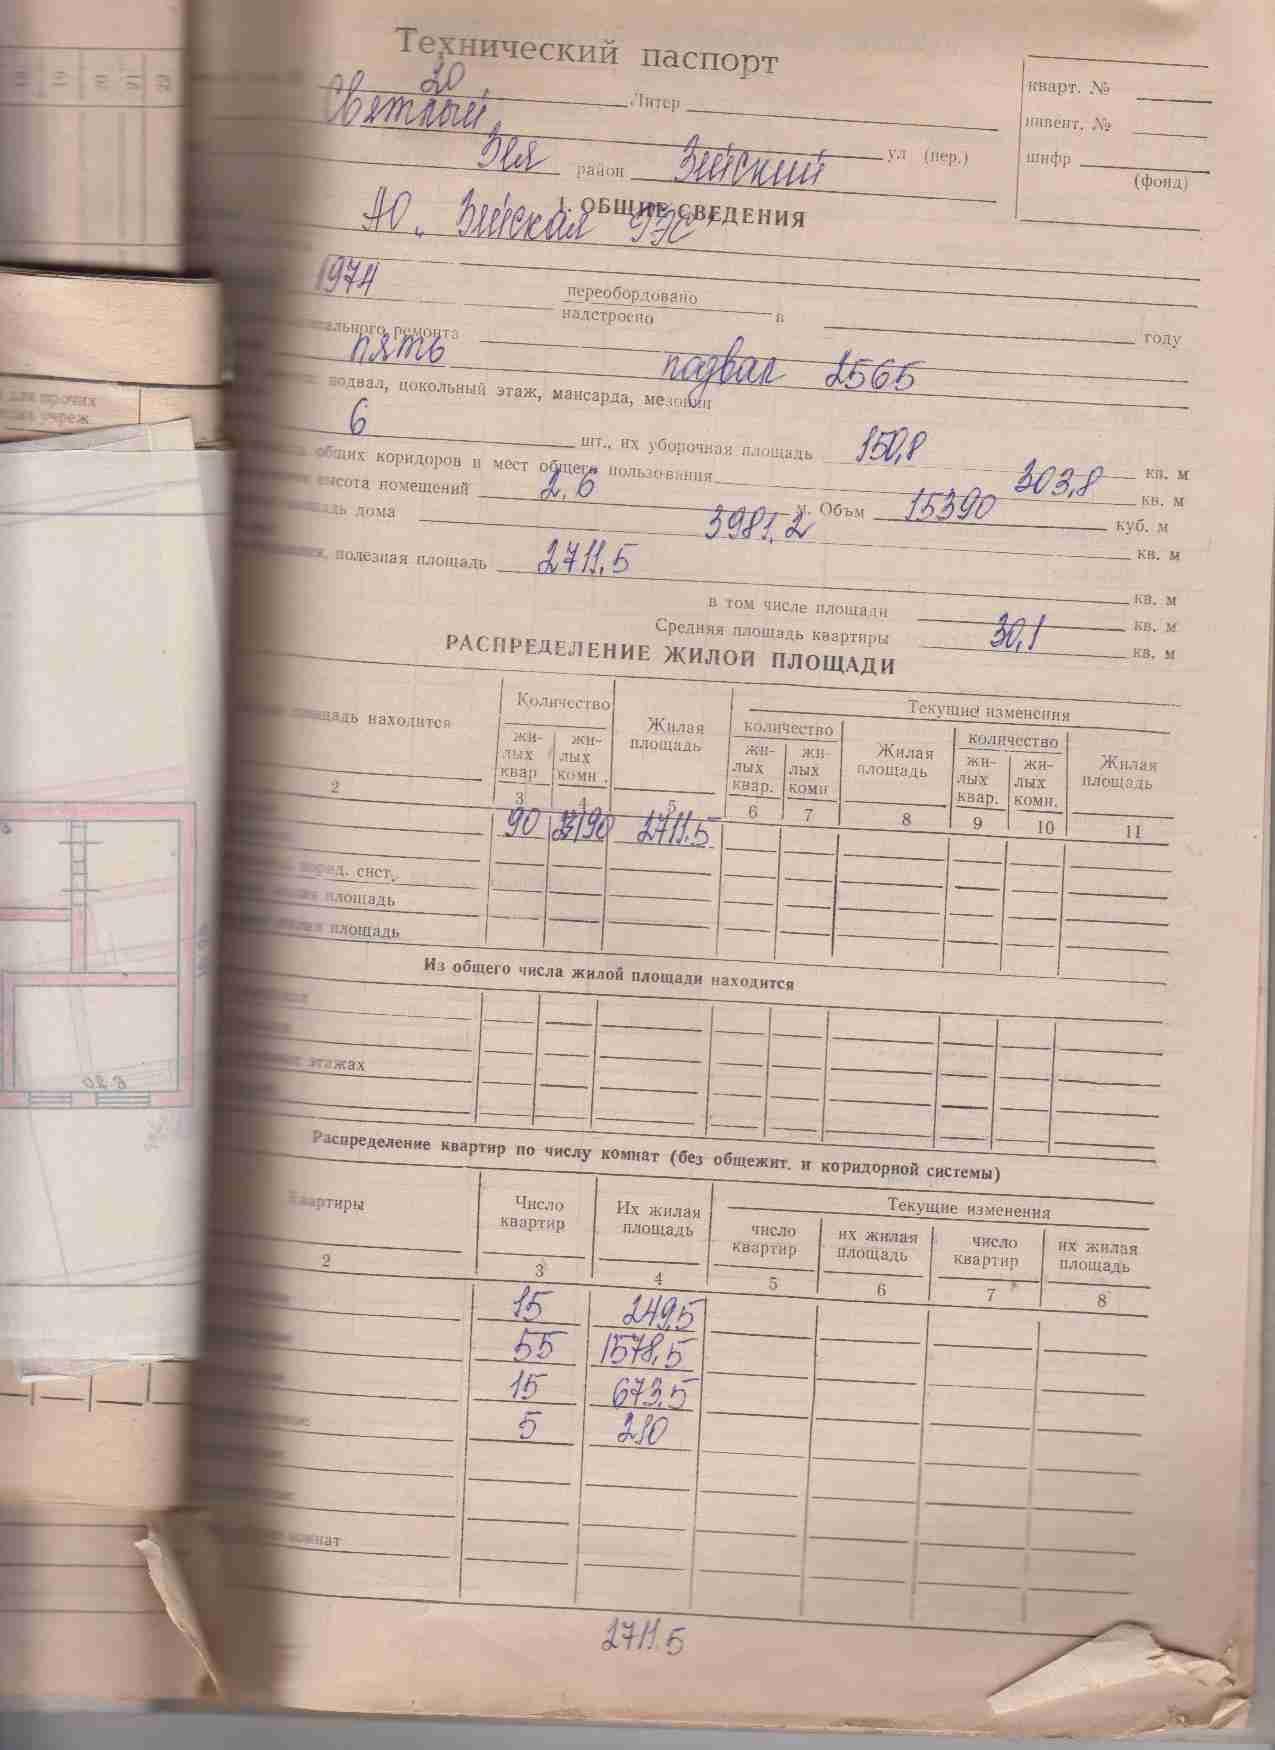 Технический паспорт
20 Литер
кварт. №
Светлый ул (пер.)
инвент. №
Зея район Зейский
шифр
(фонд)
I. ОБЩИЕ СВЕДЕНИЯ
АО „Зейская ГЭС"
1974 переобордовано
надстроено в году
ремонта
пять подвал 2565
подвал, цокольный этаж, мансарда, мезонин
6 шт., их уборочная площадь 150,8 кв. м
общих коридоров и мест общего пользования 303,8 кв. м
высота помещений 2,6 м. Объм 15390 куб. м
дома 3981,2 кв. м
полезная площадь 2711.5 кв. м
в том числе площади кв. м
Средняя площадь квартиры 30,1 кв. м
РАСПРЕДЕЛЕНИЕ ЖИЛОЙ ПЛОЩАДИ
площадь находится Количество Жилая площадь Текущие изменения
количество Жилая площадь количество Жилая площадь
жи-лых квар жи-лых комн. жи-лых квар. жи-лых комн жи-лых квар. жи-лых комн.
2 3 4 5 6 7 8 9 10 11
90 190 2711.5
сист.
площадь
площадь
Из общего числа жилой площади находится
этажах
Распределение квартир по числу комнат (без общежит. и коридорной системы)
Квартиры Число квартир Их жилая площадь Текущие изменения
число квартир их жилая площадь число квартир их жилая площадь
2 3 4 5 6 7 8
15 249,5
55 1578,5
15 673,5
5 210
комнат
2711.5
для прочих
учреж.
6.20